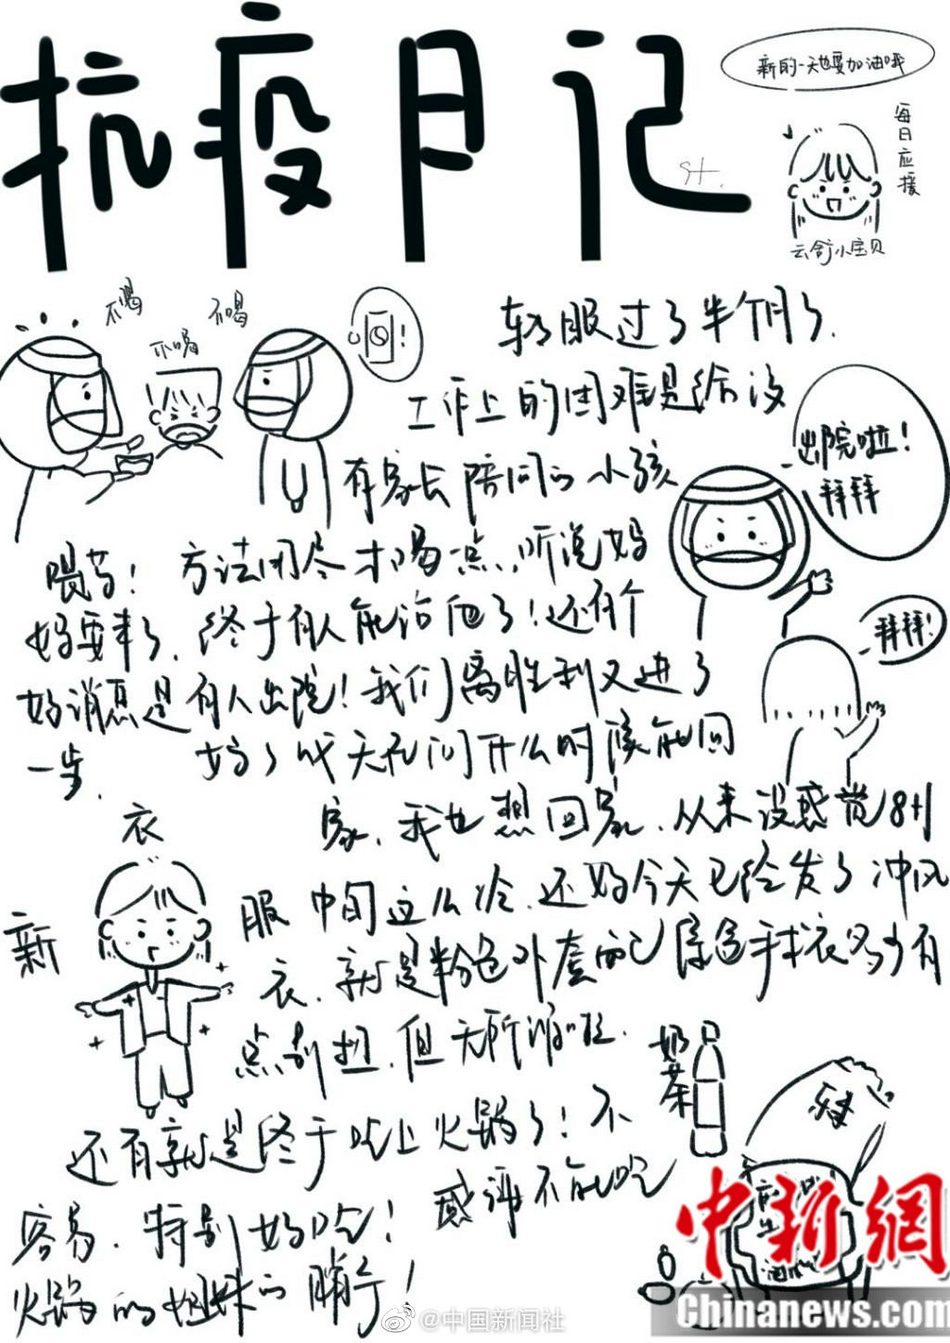 抗疫日记
新的一天也要加油哦
每日应援
云舒小宝贝
不喝
不喝
不喝
轮服过了半个月了.
工作上的困难是给没
有家长陪同的小孩
出院啦!
拜拜
喂药! 方法用尽才喝一点,听说妈
妈要来了,终于有人能治他了!还有个
拜拜!
好消息是有人出院!我们离胜利又进了
一步. 妈妈成天在问什么时候能回
家,我也想回家,从来没感觉8月
衣
服
新
中旬这么冷,还好今天已经发了冲风
衣,就是粉色外套配绿色手术衣多少有
点别扭,但无所谓啦.
奶茶
还有就是终于吃上火锅了!不
容易,特别好吃! 感谢不能吃
火锅的姐妹的
中新網
Chinanews.com
@中国新闻社